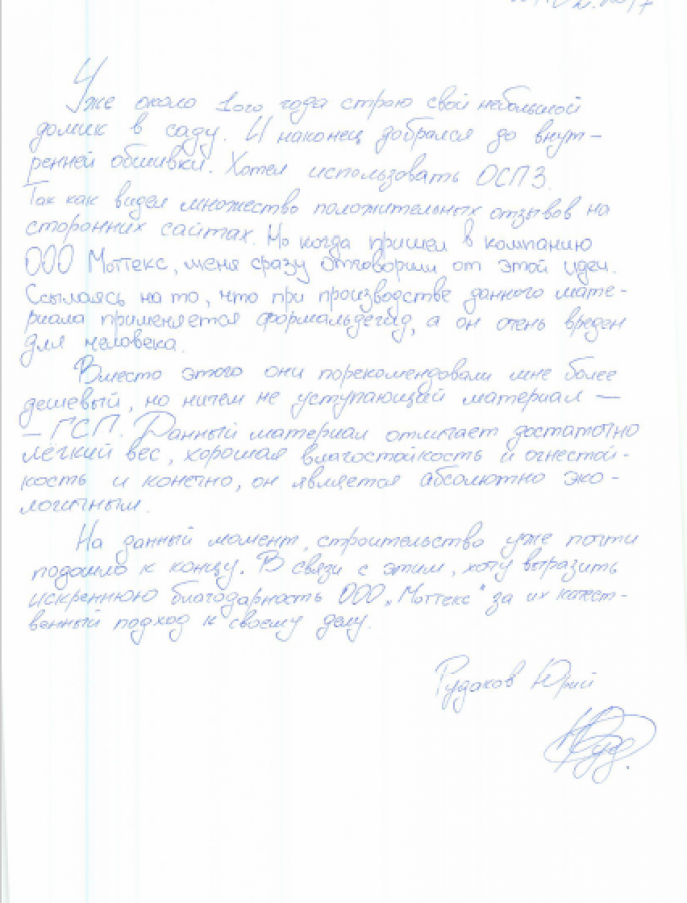 Уже около 1ого года строю свой небольшой
домик в саду. И наконец добрался до внут-
ренней обшивки. Хотел использовать ОСП3.
Так как видел множество положительных отзывов на
сторонних сайтах. Но когда пришел в компанию
ООО Моттекс, меня сразу отговорили от этой идеи.
Ссылаясь на то, что при производстве данного мате-
риала применяется формальдегид, а он очень вреден
для человека.
Вместо этого они порекомендовали мне более
дешевый, но ничем не уступающий материал —
– ГСП. Данный материал отличает достаточно
лёгкий вес, хорошая влагостойкость и огнестой-
кость и конечно, он является абсолютно эко-
логичным.
На данный момент, строительство уже почти
подошло к концу. В связи с этим, хочу выразить
искреннюю благодарность ООО „Моттекс" за их качест-
венный подход к своему делу.
Рудаков Юрий